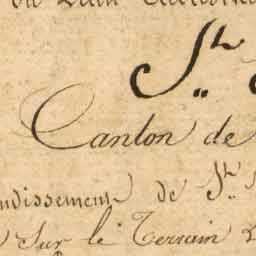 St
Canton de
ndissement de St
Sur le Terrain